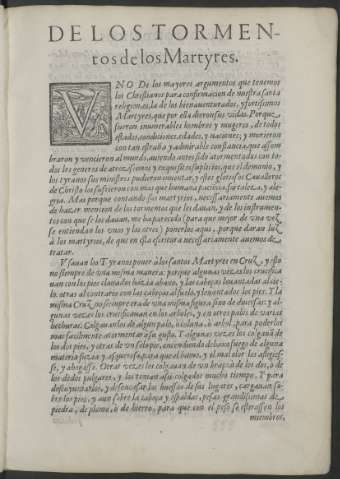 DE LOS TORMEN-
tos de los Martyres.
VNO De los mayores argumentos que tenemos
los Christianos para confirmacion de nuestra santa
religion es, la de los bienauenturados, y fortissimos
Martyres, que por ella dieron sus vidas. Porque
fueron innumerables hombres y mugeres, de todos
estados, condiciones, edades, y naciones; y murieron
con tan estraña y admirable constancia, que assom
braron y vencieron al mundo, auiendo antes sido atormentados con to-
dos los generos de atrocissimos y exquisitos suplicios, que el demonio, y
los tyranos sus ministros pudieron inuentar, y estos gloriosos Caualleros
de Christo los sufrieron con mas que humana paciencia, fortaleza, y ale-
gria. Mas porque contando sus martyrios, necessariamente auemos
de hazer mencion de los tormentos que les dauan, y de los instrumen-
tos con que se los dauan, me ha parecido (para que mejor de vna vez
se entiendan los vnos y los otros) ponerlos aqui, porque daran luz
à los martyrios, de que en esta escritura necessariamente auemos de
tratar.
Vsauan los Tyranos poner à los santos Martyres en Cruz, y esto
no siempre de vna misma manera: porque algunas vezes los crucifica
uan con los pies clauados hazia abaxo, y las cabeças leuantadas al cie-
lo: otras al contrario con las cabeças al suelo, y leuantados los pies. Y la
misma Cruz no siempre era de vna misma figura, sino de diuersas: y al-
gunas vezes los crucificauan en los arboles, y en otros palos de varias
hechuras. Colgauanlos de algun palo, ò coluna, ò arbol, para poderlos
mas facilmente atormentar à su gusto. Y algunas vezes los colgauã de
los dos pies, y otras de vn solo pie, encendiendo debaxo fuego de alguna
materia suzia y asquerosa, para que el humo, y el mal olor les afligies-
se, y ahogasse. Otras vezes los colgauan de vn braço, ò de los dos, ò de
los dedos pulgares, y los tenian assi colgados mucho tiempo. Y para
descoyuntarlos, y desencasar los huessos de sus lugares, cargauan so-
bre los pies, y aun sobre la cabeça y espaldas, pesas grandissimas de
piedra, de plomo, ò de hierro, para que con el peso se estirassen los
miembros,